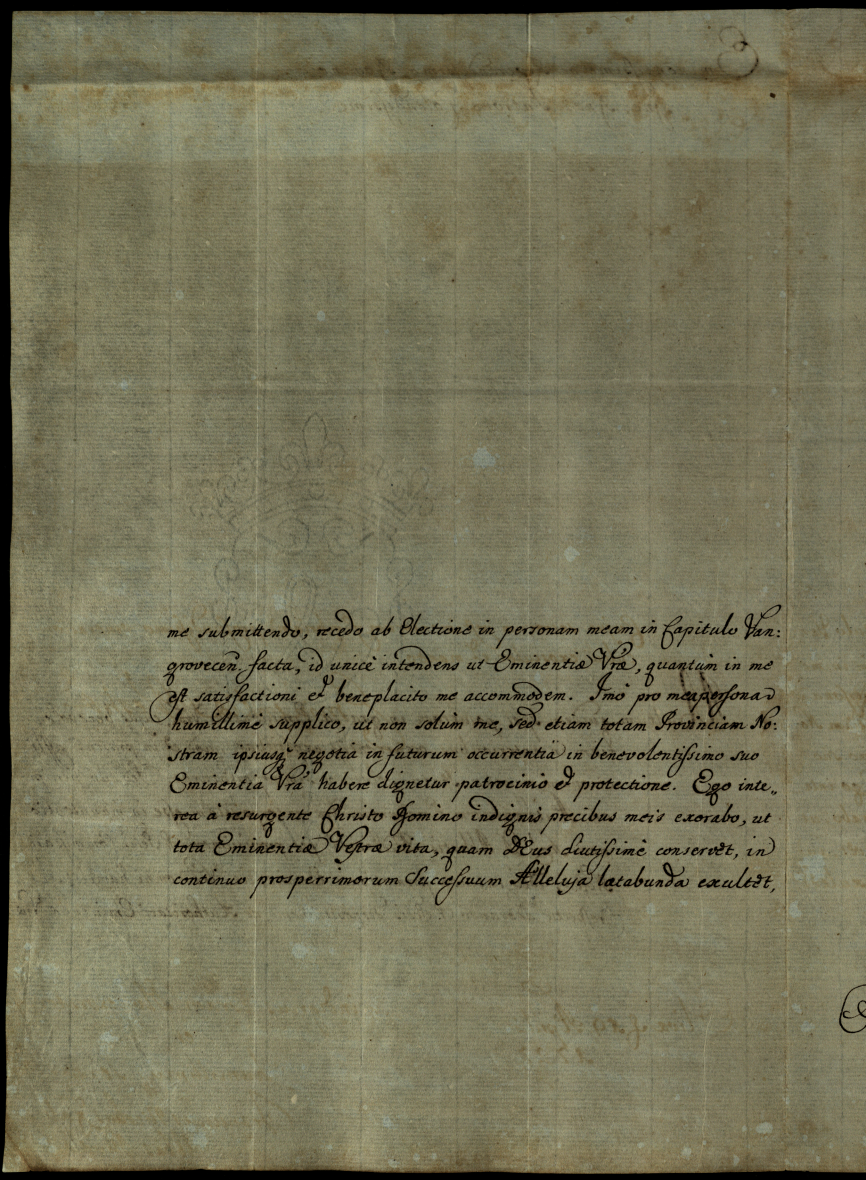 me submittendo, recedo ab Electione in personam meam in Capitulo Van:
grovecen, facta, id unicè intendens ut Eminentiæ Vræ, quantum in me
est satisfactioni et beneplacito me accommodem. Imò pro mea persona
humillimè supplico, ut non solùm me, sed etiam totam Provinciam No:
stram ipsiusq negotia in futurum occurrentia in benevolentissimo suo
Eminentia Vra habere dignetur patrocinio et protectione. Ego inte„
rea à resurgente Christo Domino indignis precibus meis exorabo, ut
tota Eminentiæ Vestræ vita, quam DEus diutissimè conservet, in
continuo prosperrimorum Successuum Alleluja lætabunda exultet,